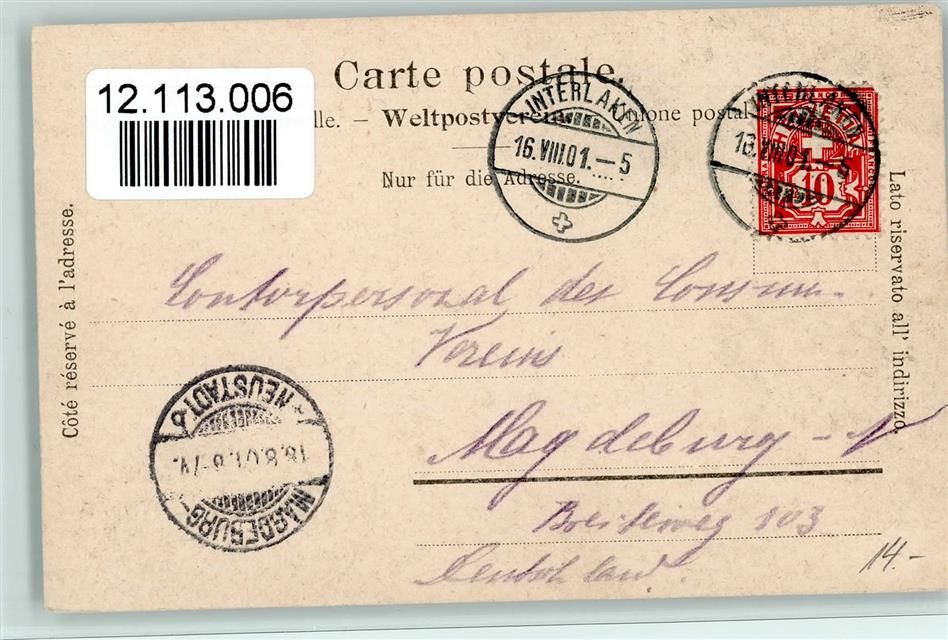 12.113.006
Carte postale.
lle. – Weltpostverein – Unione postal
Nur für die Adresse.
Côté réservé à l'adresse.
Lato riservato all' indirizzo.
INTERLAKEN
16.VIII.01.–5
INTERLAKEN
16.VIII.01.–5
10
Contorpersonal des Consum-
Vereins
Magdeburg - N
Breiteweg 103
Deutschland.
MAGDEBURG-
NEUSTADT
18.8.01.
14.-